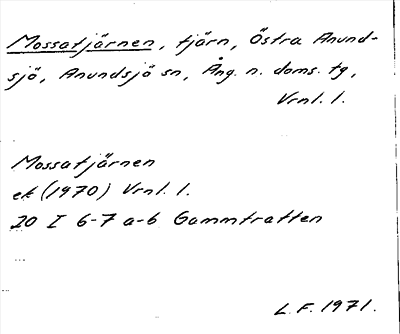 Mossatjärnen, tjärn, Östra Anund-
sjö, Anundsjö sn, Ång. n. doms. tg,
Vrnl. l.
Mossatjärnen
ek (1970) Vrnl. l.
20 I 6-7 a-b Gammtratten
L.F. 1971.